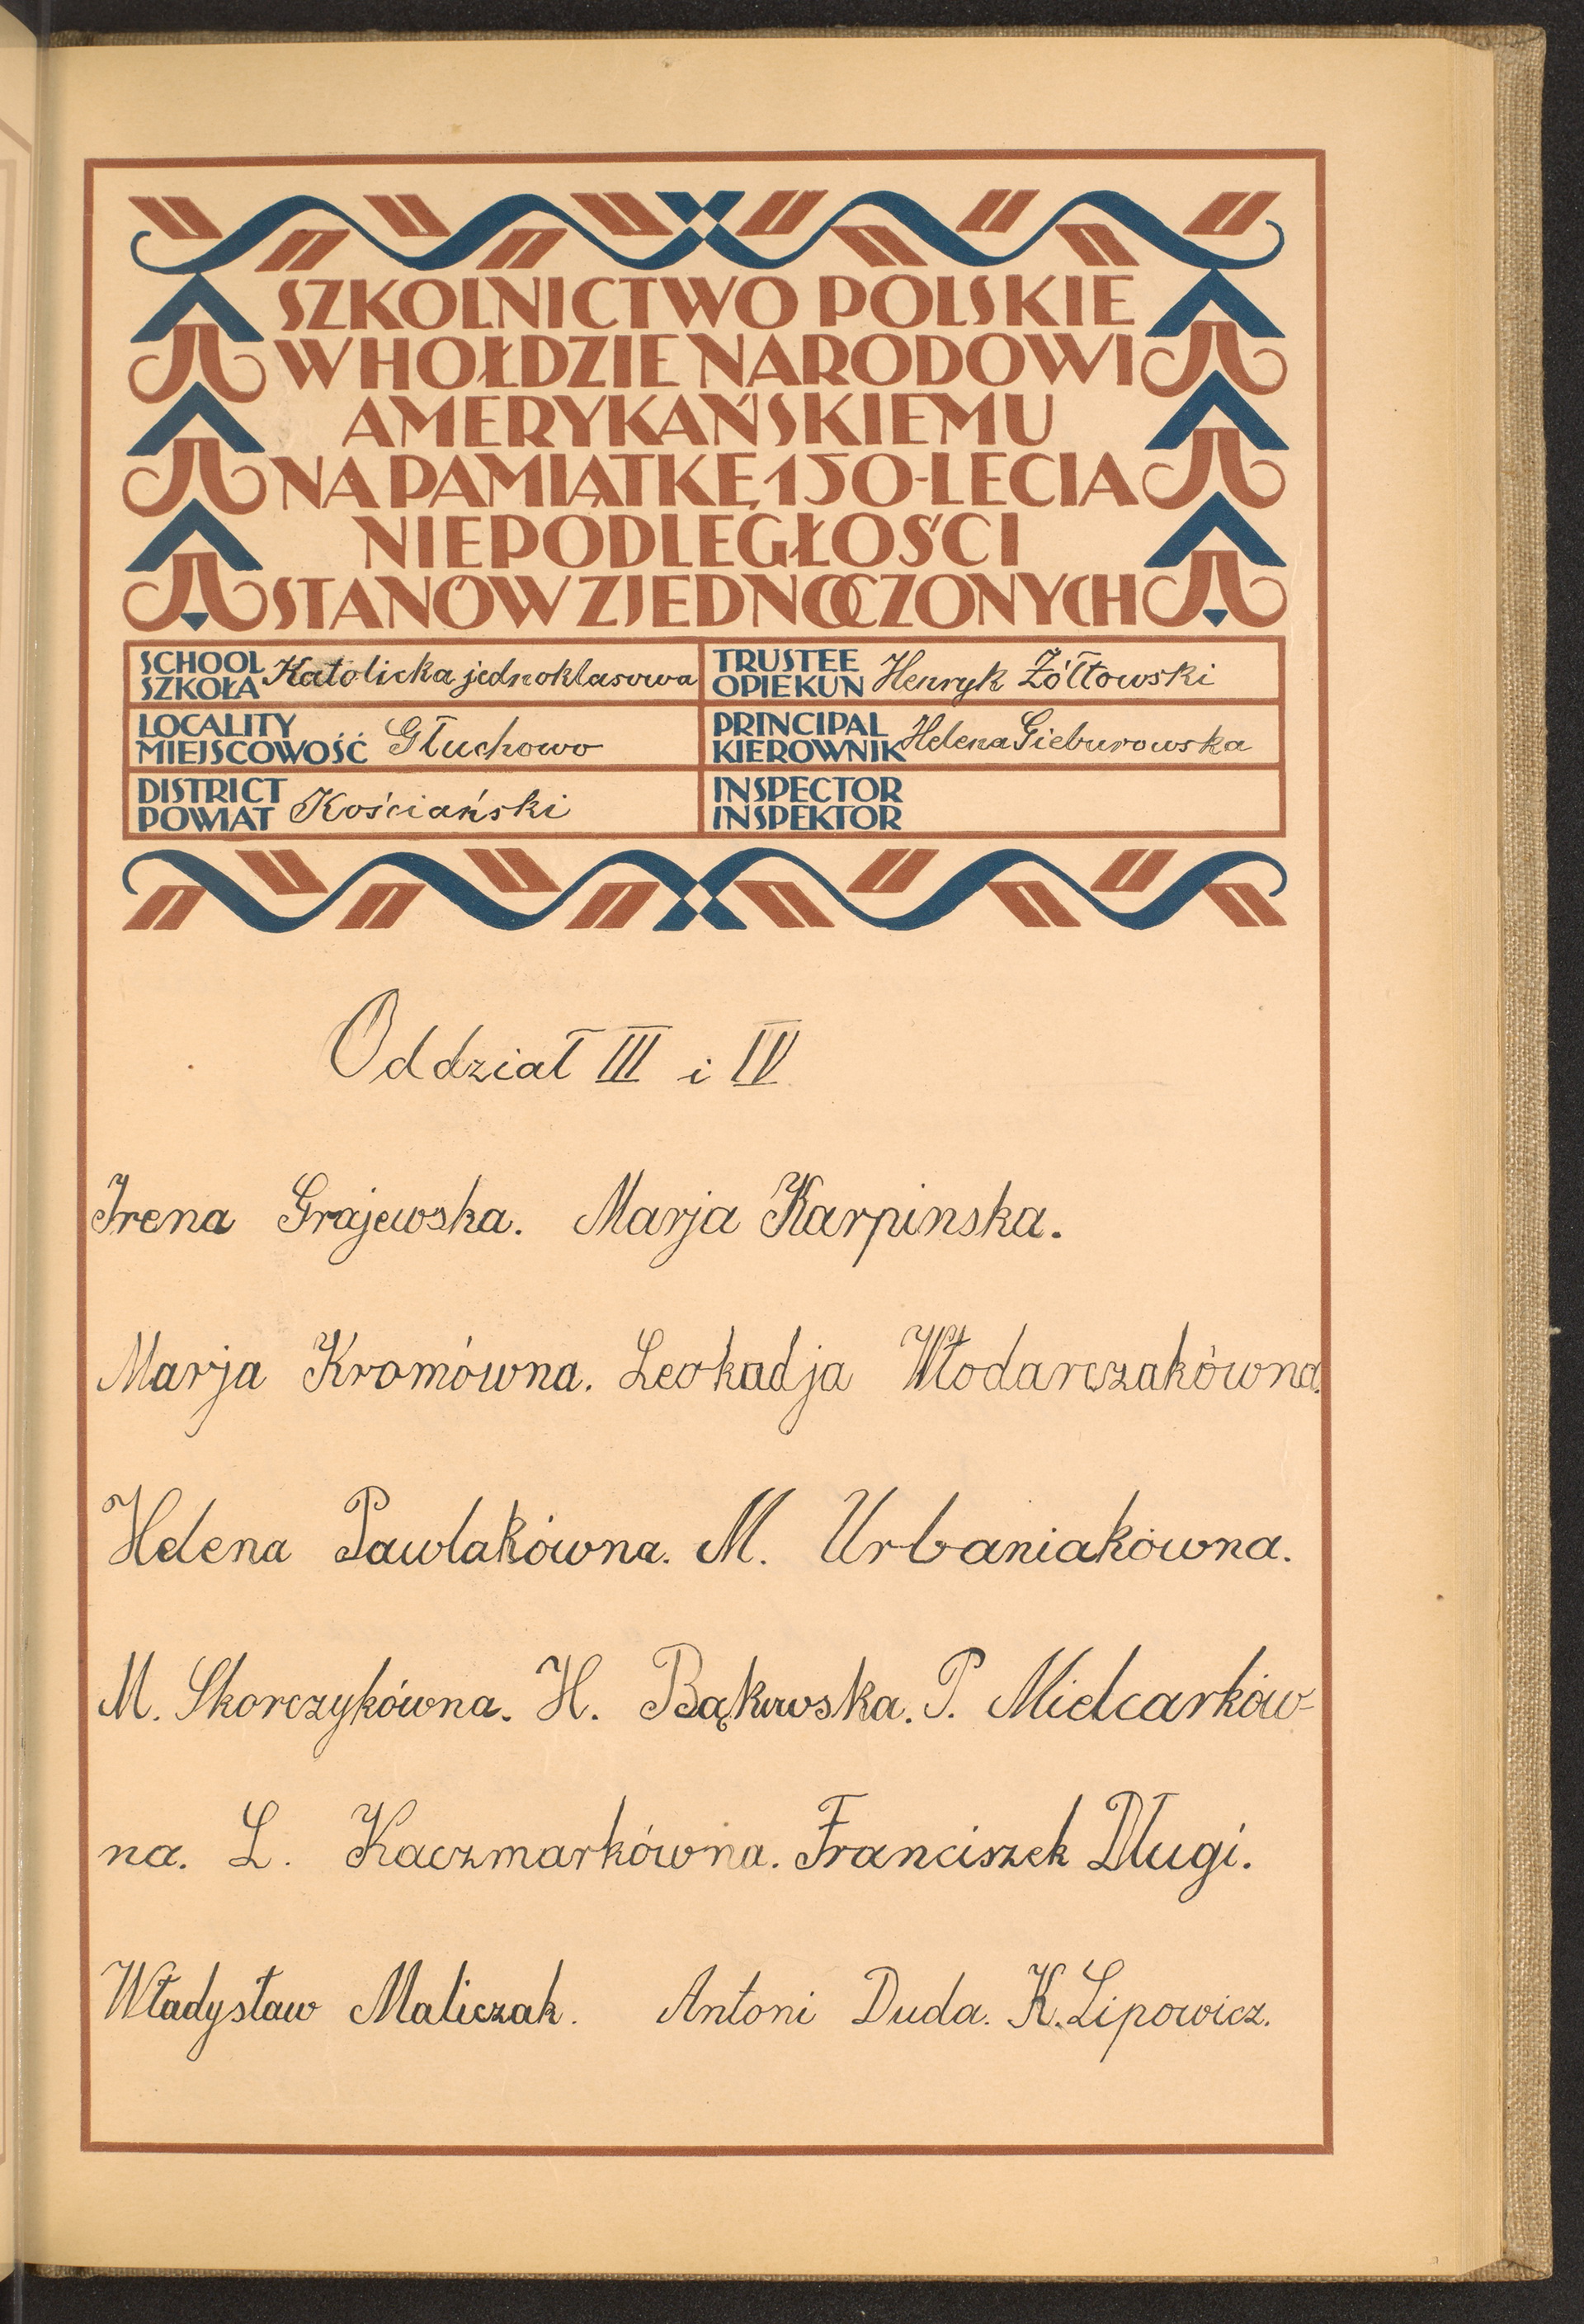 SZKOLNICTWO POLSKIE
W HOŁDZIE NARODOWI
AMERYKAŃSKIEMU
NA PAMIĄTKĘ 150-LECIA
NIEPODLEGŁOŚCI
STANÓW ZJEDNOCZONYCH
SCHOOL
SZKOŁA Katolicka jednoklasowa
TRUSTEE
OPIEKUN Henryk Żółtowski
LOCALITY
MIEJSCOWOŚĆ Głuchowo
PRINCIPAL
KIEROWNIK Helena Gieburowska
DISTRICT
POWIAT Kościański
INSPECTOR
INSPEKTOR
Oddział III i IV
Irena Grajewska. Marja Karpinska.
Marja Kromówna. Leokadja Włodarczakówna.
Helena Pawlakówna. M. Urbaniakówna.
M. Skorczykówna. H. Bąkowska. P. Mielcarków-
na. L. Kaczmarkówna. Franciszek Długi.
Władysław Maliczak. Antoni Duda. K. Lipowicz.